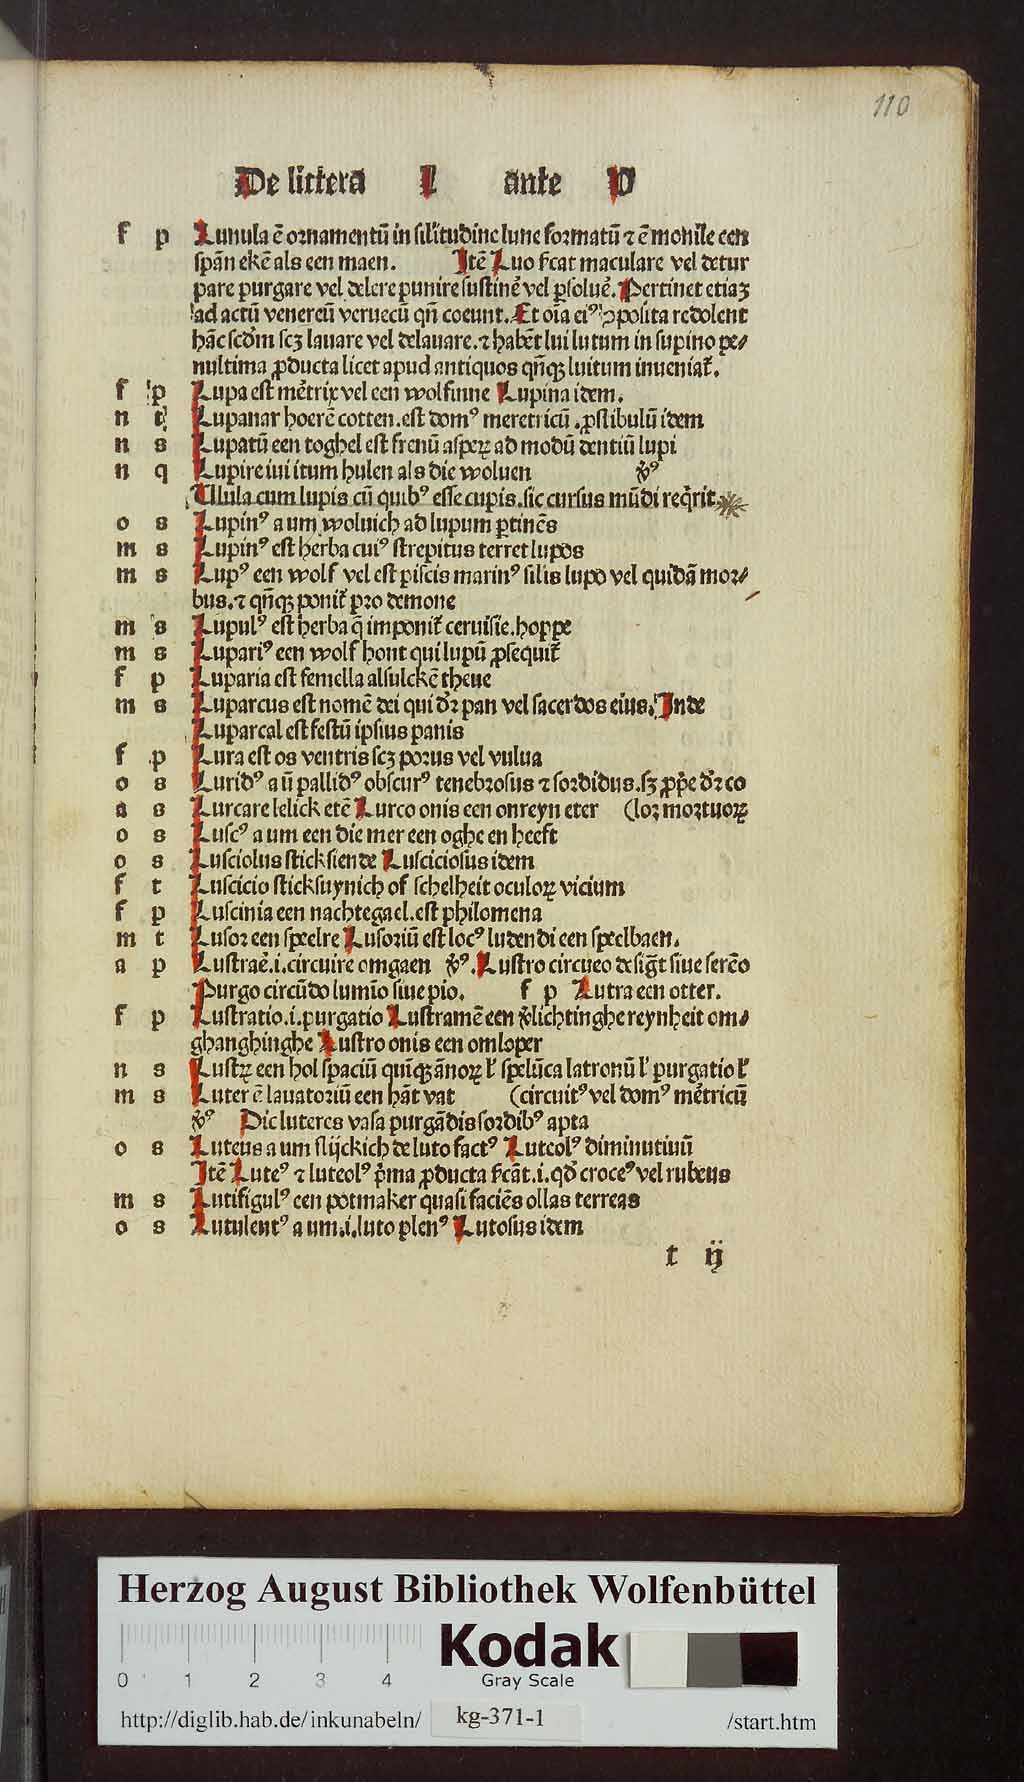 110
De littera L ante V
f p Lunula ē ornamentū in silitudine lune formatū ⁊ ē monile een
spān ekē als een maen. Itē Luo fcat maculare vel detur
pare purgare vel delere punire sustinẽ vel ꝑsoluẽ. Pertinet etiaꝫ
ad actū venereū veruecū qñ coeunt. Et oĩa ei⁹ ꝯposita redolent
hāc scdm̄ scꝫ lauare vel delauare. ⁊ habēt lui lutum in supino pe⸗
nultima ꝓducta licet apud antiquos qñqꝫ luitum inueniat̃.
f p Lupa est mẽtrix vel een wolfinne Lupina idem.
n t Lupanar hoerē cotten. est dom⁹ meretricū. ꝓstibulū idem
n s Lupatū een toghel est frenū asperꝝ ad modū dentiū lupi
n q Lupire iui itum hulen als die woluen ꝟ⁹
Ulula cum lupis cū quib⁹ esse cupis. sic cursus mūdi reqͥrit.
o s Lupin⁹ a um woluich ad lupum ꝑtinēs
m s Lupin⁹ est herba cui⁹ strepitus terret lupos
m s Lup⁹ een wolf vel est piscis marin⁹ silis lupo vel quidā mor⸗
bus. ⁊ qñqꝫ ponit̃ pro demone
m s Lupul⁹ est herba q̄ imponit̃ ceruisie. hoppe
m s Lupari⁹ een wolf hont qui lupū ꝓsequit̃
f p Luparia est femella alsulckē theue
m s Luparcus est nomē dei qui dr̃ pan vel sacerdos eius. Inde
Luparcal est festū ipsius panis
f p Lura est os ventris scꝫ porus vel vulua
o s Lurid⁹ a ū pallid⁹ obscur⁹ tenebrosus ⁊ sordidus. sꝫ ꝓpẽ dr̃ co
a s Lurcare lelick etē Lurco onis een onreyn eter (lor mortuorꝝ
o s Lusc⁹ a um een die mer een oghe en heeft
o s Lusciolus sticksiende Lusciciosus idem
f t Luscicio sticksuynich of schelheit oculorꝝ vicium
f p Luscinia een nachtegael. est philomena
m t Lusor een speelre Lusoriū est loc⁹ ludendi een speelbaen.
a p Lustraẽ .i. circuire omgaen ꝟ⁹. Lustro circueo desig̃t siue serēo
Purgo circūdo lumīo siue pio. f p Lutra een otter.
f p Lustratio .i. purgatio Lustramē een ꝟlichtinghe reynheit om⸗
ghanghinghe Lustro onis een omloper
n s Lustꝝ een hol spaciū quīqꝫ ānorꝝ lˀ spelūca latronū lˀ purgatio lˀ
m s Luter ē lauatoriū een hāt vat (circuit⁹ vel dom⁹ mẽtricū
ꝟ⁹ Dic luteres vasa purgādis sordib⁹ apta
o s Luteus a um slijckich de luto fact⁹ Luteol⁹ diminutiuū
Itē Lute⁹ ⁊ luteol⁹ pͥma ꝓducta fcāt .i. qd̄ croce⁹ vel rubeus
m s Lutifigul⁹ een potmaker quasi faciēs ollas terreas
o s Lutulent⁹ a um .i. luto plen⁹ Lutosus idem
t ij
Herzog August Bibliothek Wolfenbüttel
Kodak
Gray Scale
0 1 2 3 4
http://diglib.hab.de/inkunabeln/ kg-371-1 /start.htm